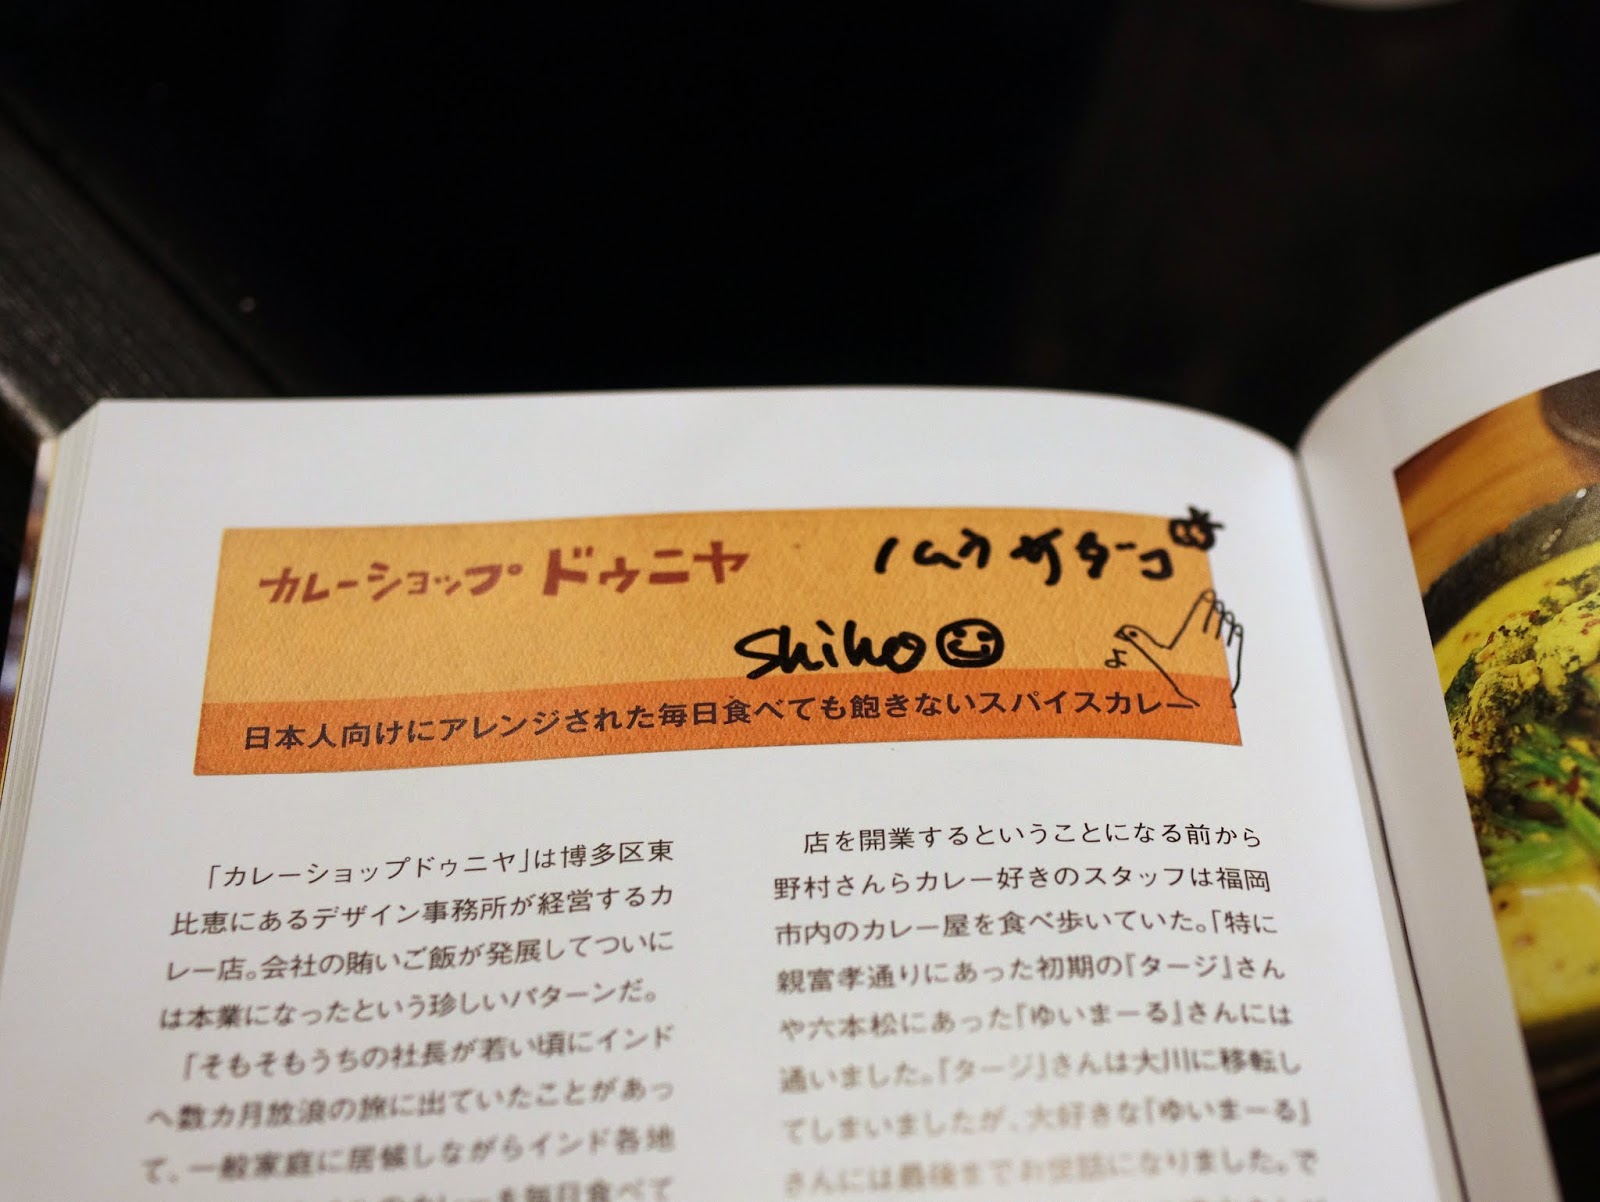 カレーショップ ドゥニヤ
ハムラ サターコ
shiho
よ
日本人向けにアレンジされた毎日食べても飽きないスパイスカレー
「カレーショップドゥニヤ」は博多区東
比恵にあるデザイン事務所が経営するカ
レー店。会社の賄いご飯が発展してついに
は本業になったという珍しいパターンだ。
「そもそもうちの社長が若い頃にインド
へ数カ月放浪の旅に出ていたことがあっ
て、一般家庭に居候しながらインド各地
のカレーを毎日食べて
店を開業するということになる前から
野村さんらカレー好きのスタッフは福岡
市内のカレー屋を食べ歩いていた。「特に
親富孝通りにあった初期の『タージ』さん
や六本松にあった『ゆいまーる』さんには
通いました。『タージ』さんは大川に移転し
てしまいましたが、大好きな『ゆいまーる』
さんには最後までお世話になりました。で